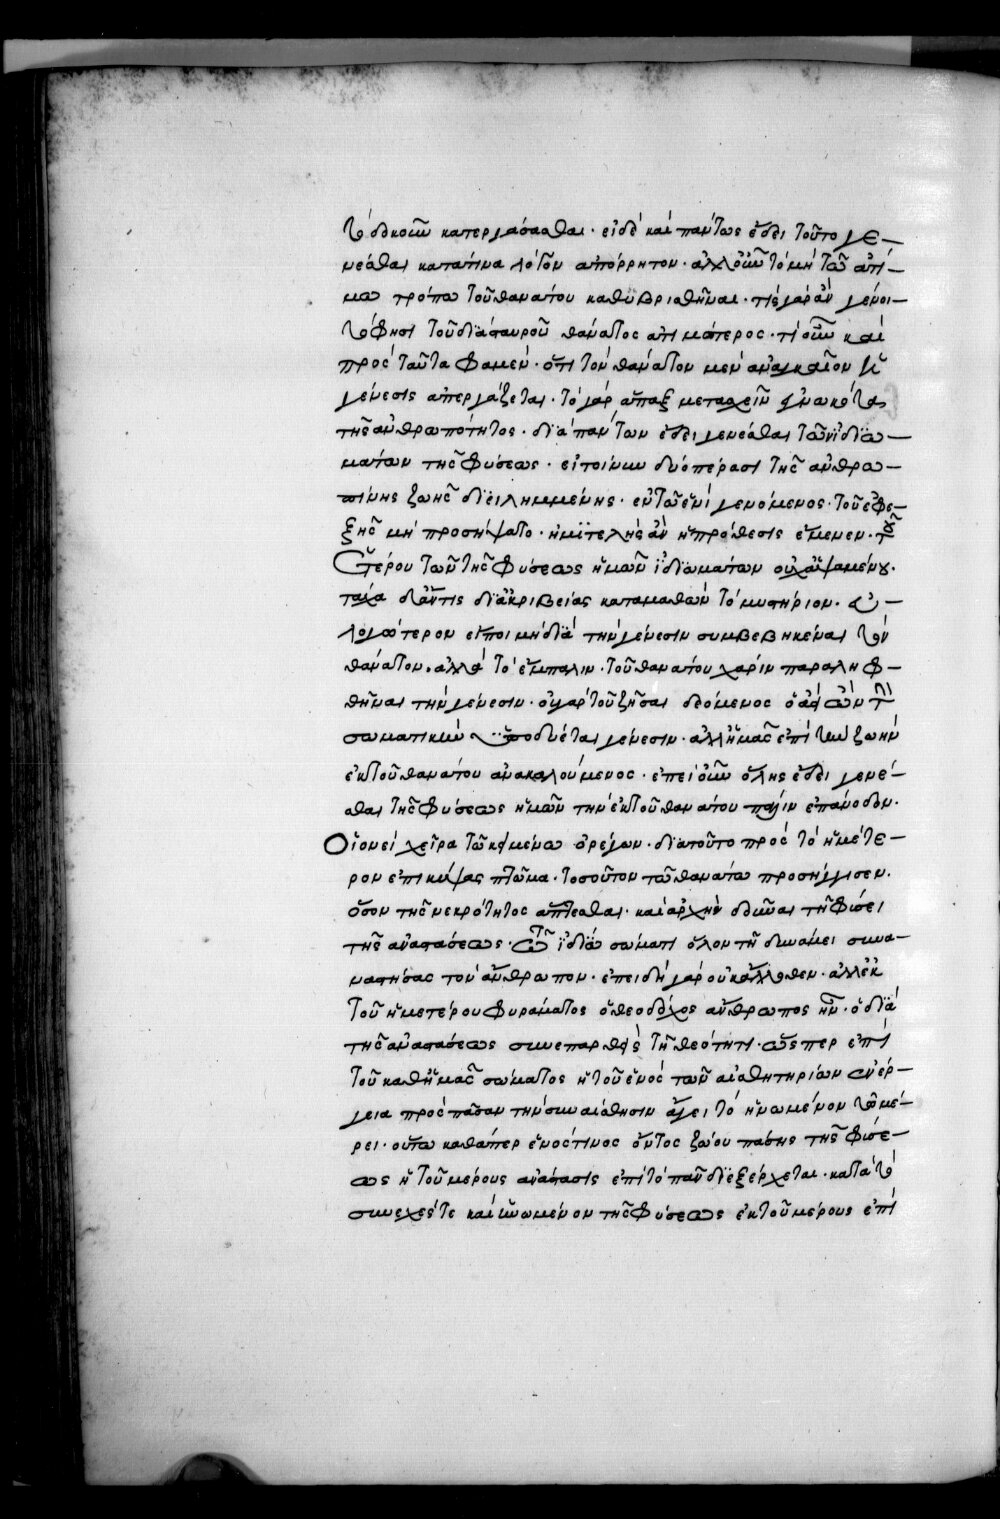 τὸ δοκοῦν κατεργάσασθαι· εἰ δὲ καὶ πάντως ἔδει τοῦτο γε-
νέσθαι κατά τινα λόγον ἀπόρρητον· ἀλλ' οὖν τὸ μὴ τῶ ἀτί-
μω τρόπω τοῦ θανάτου καθυβρισθῆναι· τίς γὰρ ἂν γένοι-
το φησὶ τοῦ διὰ σταυροῦ θάνατος ἀτιμότερος· τί οὖν καὶ
πρὸς ταῦτα φαμέν· ὅτι τὸν θάνατον μὲν ἀναγκαῖον ἡ
γένεσις ἀπεργάζεται· τὸ γὰρ ἅπαξ μετασχεῖν ἐγνωκότα
τῆς ἀνθρωπότητος· διὰ πάντων ἔδει γενέσθαι τῶν ἰδιω-
μάτων τῆς φύσεως· εἰ τοίνυν δυὸ πέρασι τῆς ἀνθρω-
πίνης ζωῆς διειλημμένης· ἐν τῶ ἑνὶ γενόμενος· τοῦ ἐφε-
ξῆς μὴ προσήψατο· ἡμιτελὴς ἂν ἡ πρόθεσις ἔμενεν· τοῦ
ἑτέρου τῶν τῆς φύσεως ἡμῶν ἰδιωμάτων οὐχ ἁψαμένου·
τάχα δ' ἄν τις δι' ἀκριβείας καταμαθὼν τὸ μυστήριον· εὐ-
λογώτερον εἴποι μὴ διὰ τὴν γένεσιν συμβεβηκέναι τὸν
θάνατον· ἀλλὰ τὸ ἔμπαλιν· τοῦ θανάτου χάριν παραληφ-
θῆναι τὴν γένεσιν· οὐ γὰρ τοῦ ζῆσαι δεόμενος ὁ ἀεὶ ὢν τὴν
σωματικὴν ὑποδύεται γένεσιν· ἀλλ' ἡμᾶς ἐπὶ τὴν ζωὴν
ἐκ τοῦ θανάτου ἀνακαλούμενος· ἐπεὶ οὖν ὅλης ἔδει γενέ-
σθαι τῆς φύσεως ἡμῶν τὴν ἐκ τοῦ θανάτου πάλιν ἐπάνοδον·
Οἱονεὶ χεῖρα τῶ κειμένω ὀρέγων· διὰ τοῦτο πρὸς τὸ ἡμέτε-
ρον ἐπικύψας πτῶμα· τοσοῦτον τῶ θανάτω προσήγγισεν·
ὅσον τῆς νεκρότητος ἅπτεσθαι· καὶ ἀρχὴν δοῦναι τῆ φύσει
τῆς ἀναστάσεως· τῶ ἰδίω σώματι ὅλον τῆ δυνάμει συνα-
ναστήσας τὸν ἄνθρωπον· ἐπειδὴ γὰρ οὐκ ἄλλοθεν· ἀλλ' ἐκ
τοῦ ἡμετέρου φυράματος ὁ θεοδόχος ἄνθρωπος ἦν· ὁ διὰ
τῆς ἀναστάσεως συνεπαρθεὶς τῆ θεότητι· ὥσπερ ἐπὶ
τοῦ καθ' ἡμᾶς σώματος ἡ τοῦ ἑνὸς τῶν αἰσθητηρίων ἐνέρ-
γεια πρὸς πᾶσαν τὴν συναίσθησιν ἄγει τὸ ἡνωμένον τῶ μέ-
ρει· οὕτω καθάπερ ἑνός τινος ὄντος ζώου πάσης τῆς φύσε-
ως ἡ τοῦ μέρους ἀνάστασις ἐπὶ τὸ πᾶν διεξέρχεται· κατὰ τὸ
συνεχές τε καὶ ἡνωμένον τῆς φύσεως ἐκ τοῦ μέρους ἐπὶ